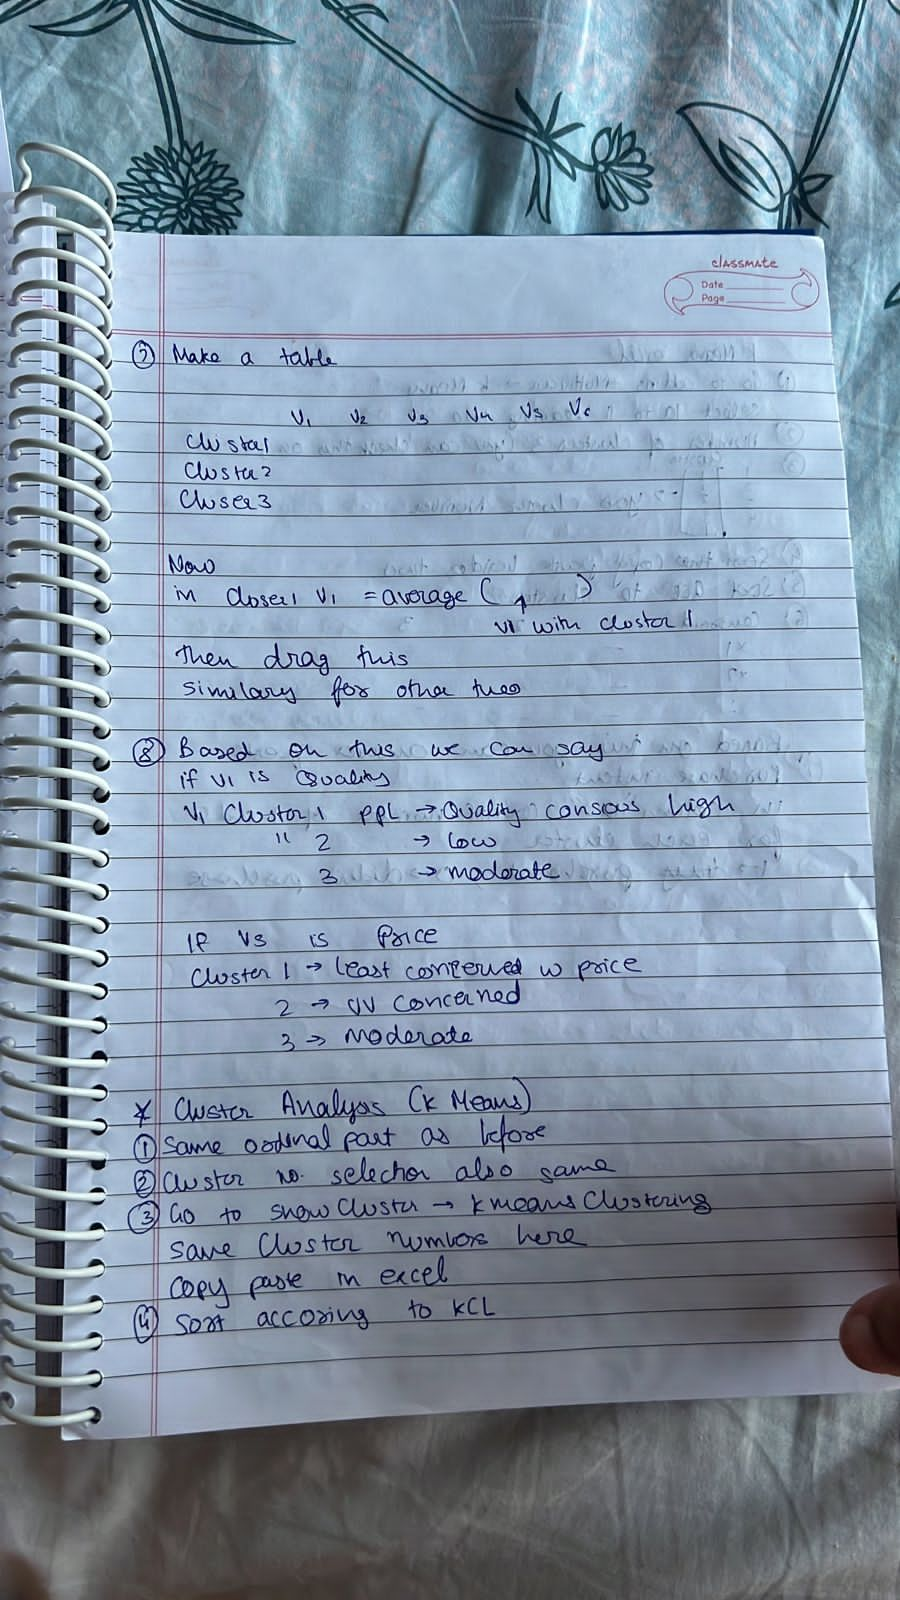 classmate
Date
Page
⑦ Make a table
V1 V2 V3 V4 V5 V6
Clusta1
Clusta2
Cluser3
Now
in cluser1 V1 = average ( ↑ )
V1 with cluster 1
Then drag this
similary for other two
⑧ Based on this we can say
if V1 is Quality
V1 Cluster 1 ppl → Quality consious high
" 2 → low
3 → moderate
If V3 is Price
Cluster 1 → least concerned w price
2 → vv concerned
3 → Moderate
* Cluster Analysis (K Means)
① Same ordinal part as before
② Cluster no. selection also same
③ Go to show Cluster → k means Clustering
Save Cluster numbers here
Copy paste in excel
④ Sort accoring to KCL